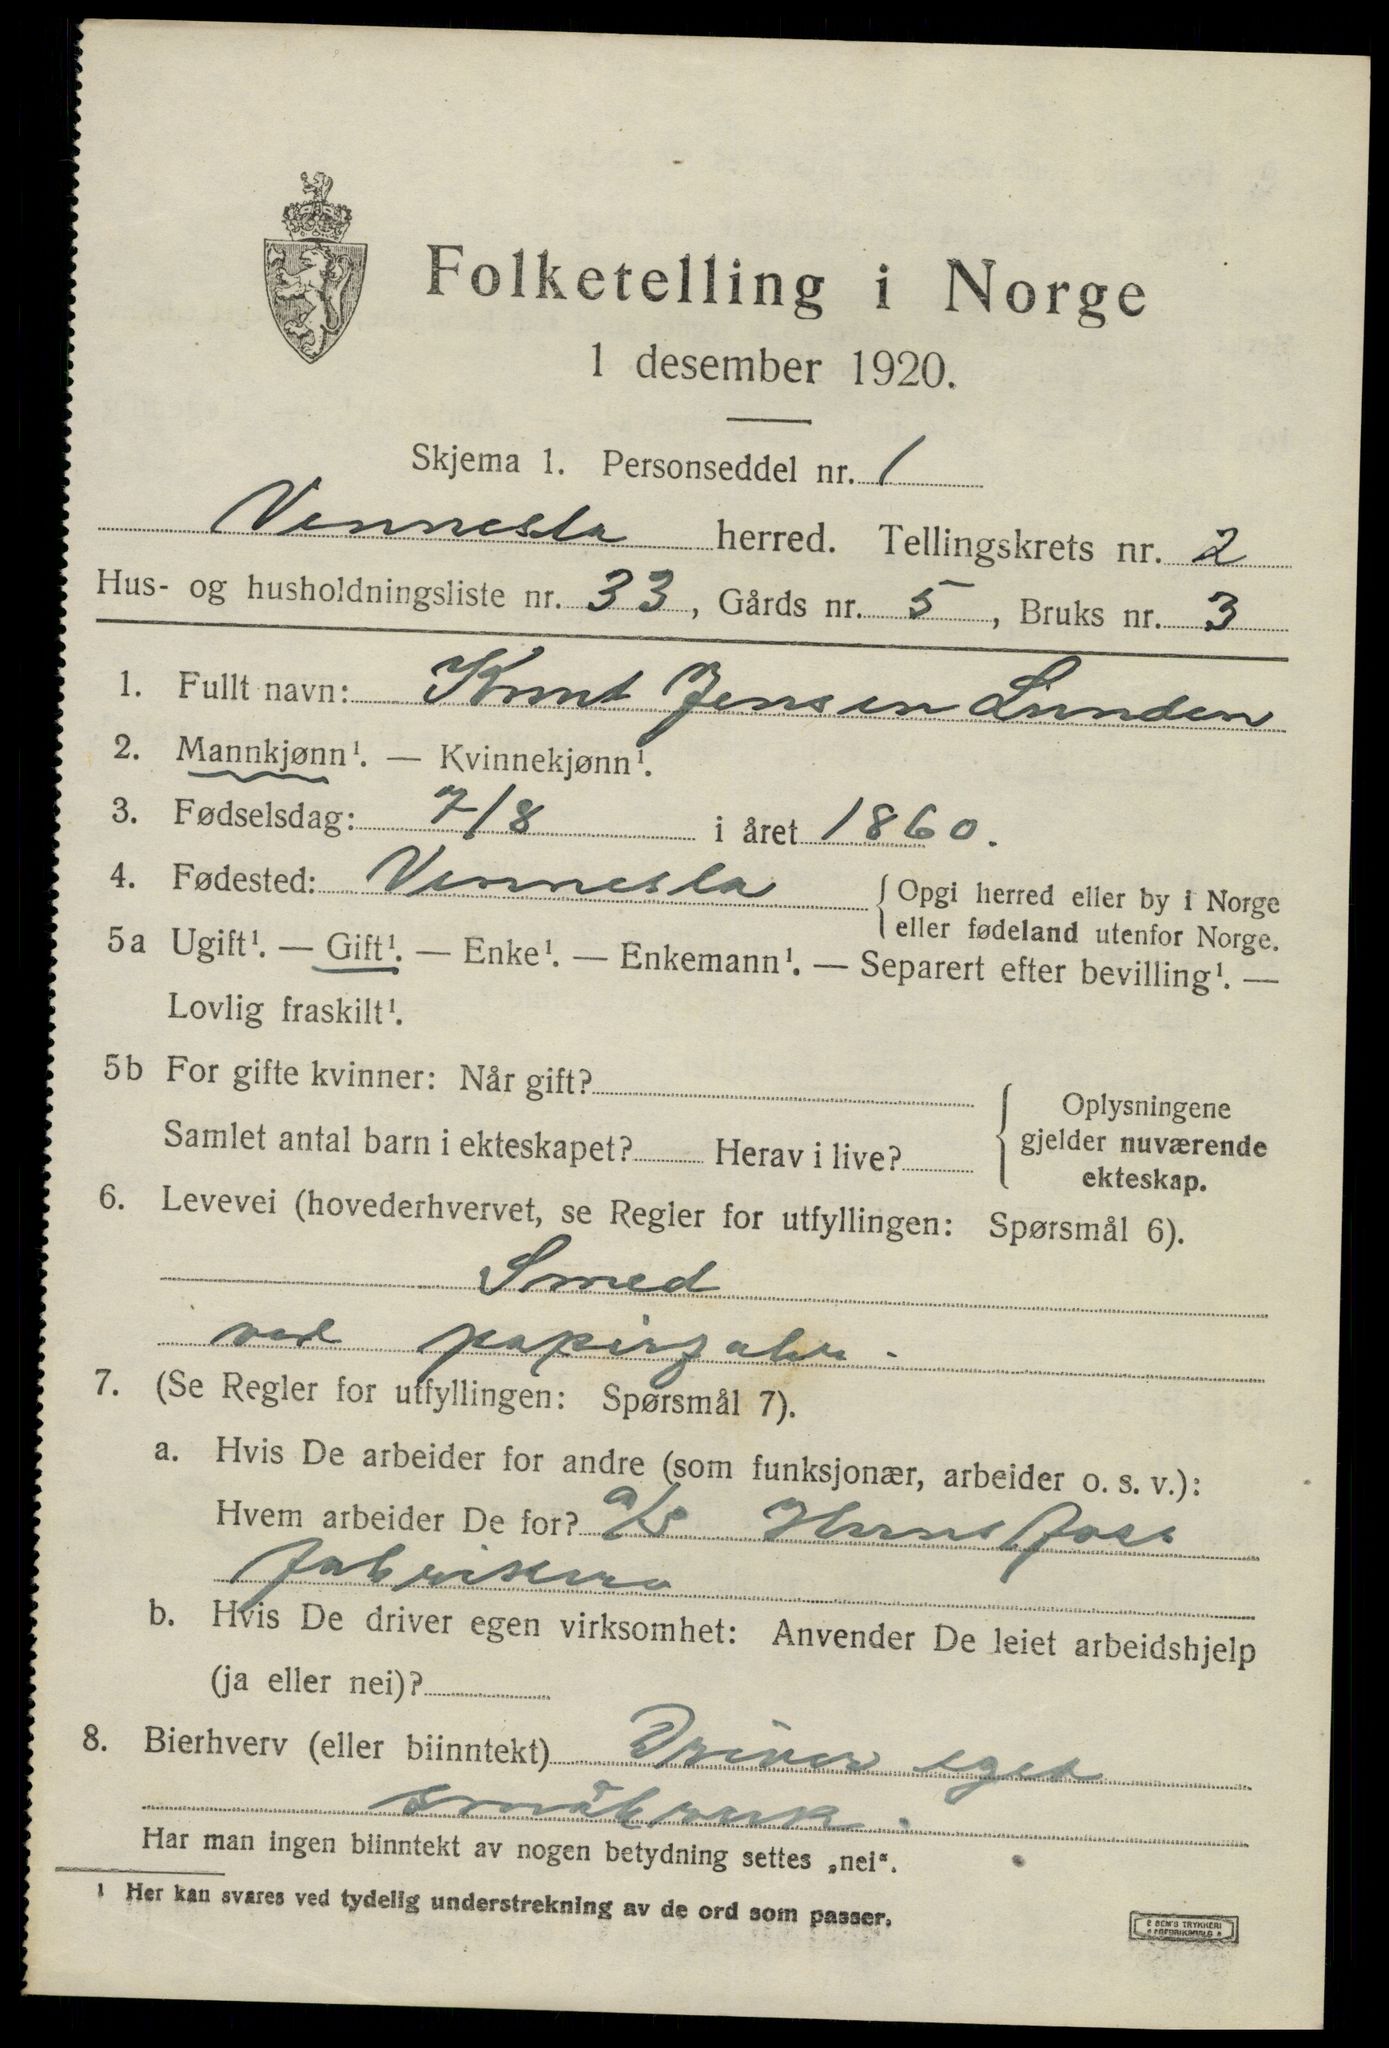 Folketelling i Norge
1 desember 1920.
Skjema 1. Personseddel nr. 1
Vennesla herred. Tellingskrets nr. 2
Hus- og husholdningsliste nr. 33, Gårds nr. 5, Bruks nr. 3
1. Fullt navn: Knut Jensen Lunden
2. Mannkjønn¹. — Kvinnekjønn¹.
3. Fødselsdag: 7/8 i året 1860.
4. Fødested: Vennesla {Opgi herred eller by i Norge
eller fødeland utenfor Norge.
5a Ugift¹. — Gift¹. — Enke¹. — Enkemann¹. — Separert efter bevilling¹. —
Lovlig fraskilt¹.
5b For gifte kvinner: Når gift?
Samlet antal barn i ekteskapet? Herav i live?
{ Oplysningene
gjelder nuværende
ekteskap.
6. Levevei (hovederhvervet, se Regler for utfyllingen: Spørsmål 6).
Smed
ved papirfabr.
7. (Se Regler for utfyllingen: Spørsmål 7).
a. Hvis De arbeider for andre (som funksjonær, arbeider o. s. v.):
Hvem arbeider De for? a/s Hunsfoss
fabrikker
b. Hvis De driver egen virksomhet: Anvender De leiet arbeidshjelp
(ja eller nei)?
8. Bierhverv (eller biinntekt) Driver eget
småbruk.
Har man ingen biinntekt av nogen betydning settes „nei“.
¹ Her kan svares ved tydelig understrekning av de ord som passer.